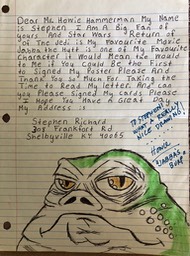 Dear Mr. Howie Hammerman My Name
is Stephen I Am A Big Fan of
Yours And Star Wars "Return of
of The Jedi is My Favourite Movie
Jabba the Hutt is one of My Favourite
Character it Would Mean the Would
to Me if You Could Be the First
to Signed My Poster Please And
Thank You So Much For Taking the
Time to Read My letter And can
you Please Signed My Cards Please
I Hope You Have A Great Day
My Address is
Stephen Richard
308 Frankfort Rd
Shelbyville KY 40065
To Stephen
What a really
nice drawing!
Howie
"Jabba's
Burp"